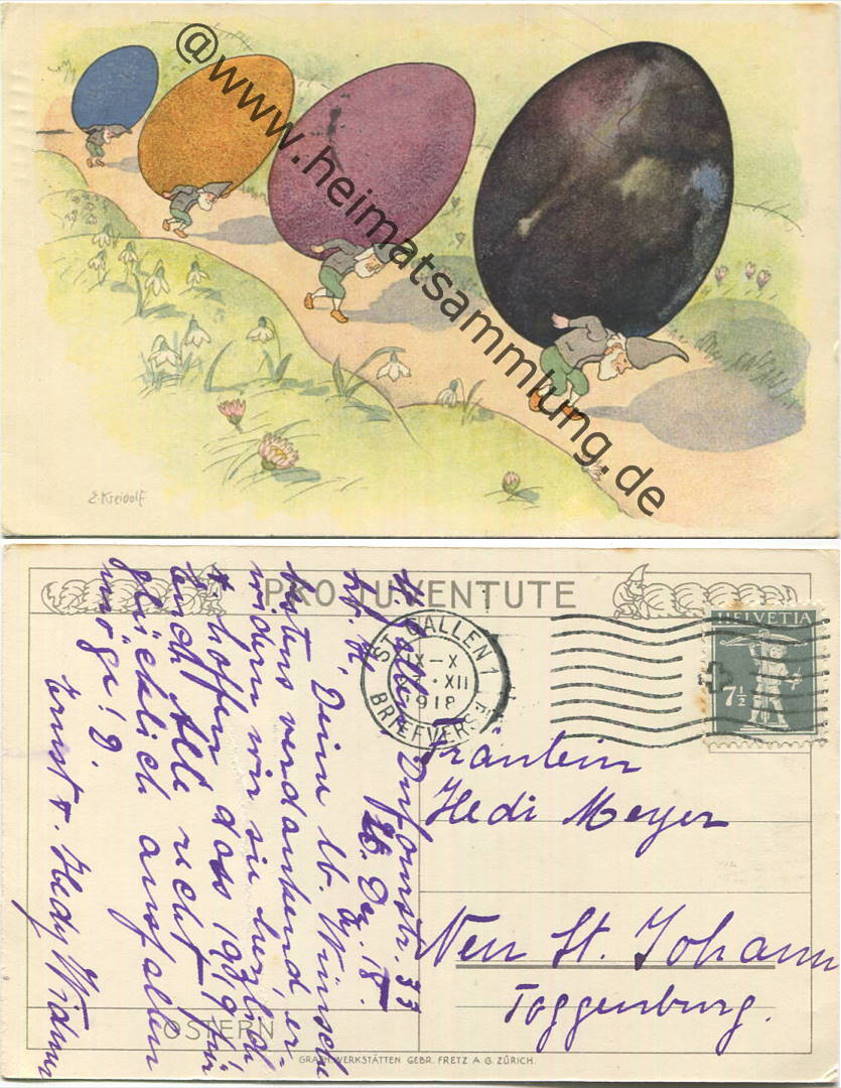 @www.heimatsammlung.de
E. Kreidolf
PRO JUVENTUTE
ST. GALLEN 1
IX-X
XII
1918
BRIEFVERS
HELVETIA
7½
Fräulein
Hedi Meyer
Neu St. Johann
Toggenburg.
St. Gallen, 33
26. Dez. 18.
Deine lb. Wünsche
bestens verdankend, er-
widern wir sie herzlich
& hoffen dass 1919 für
Euch Alle recht
glücklich ausfallen
möge!
Ernst & Hedy Widmer
OSTERN
GRAPH. WERKSTÄTTEN GEBR. FRETZ A G. ZÜRICH.